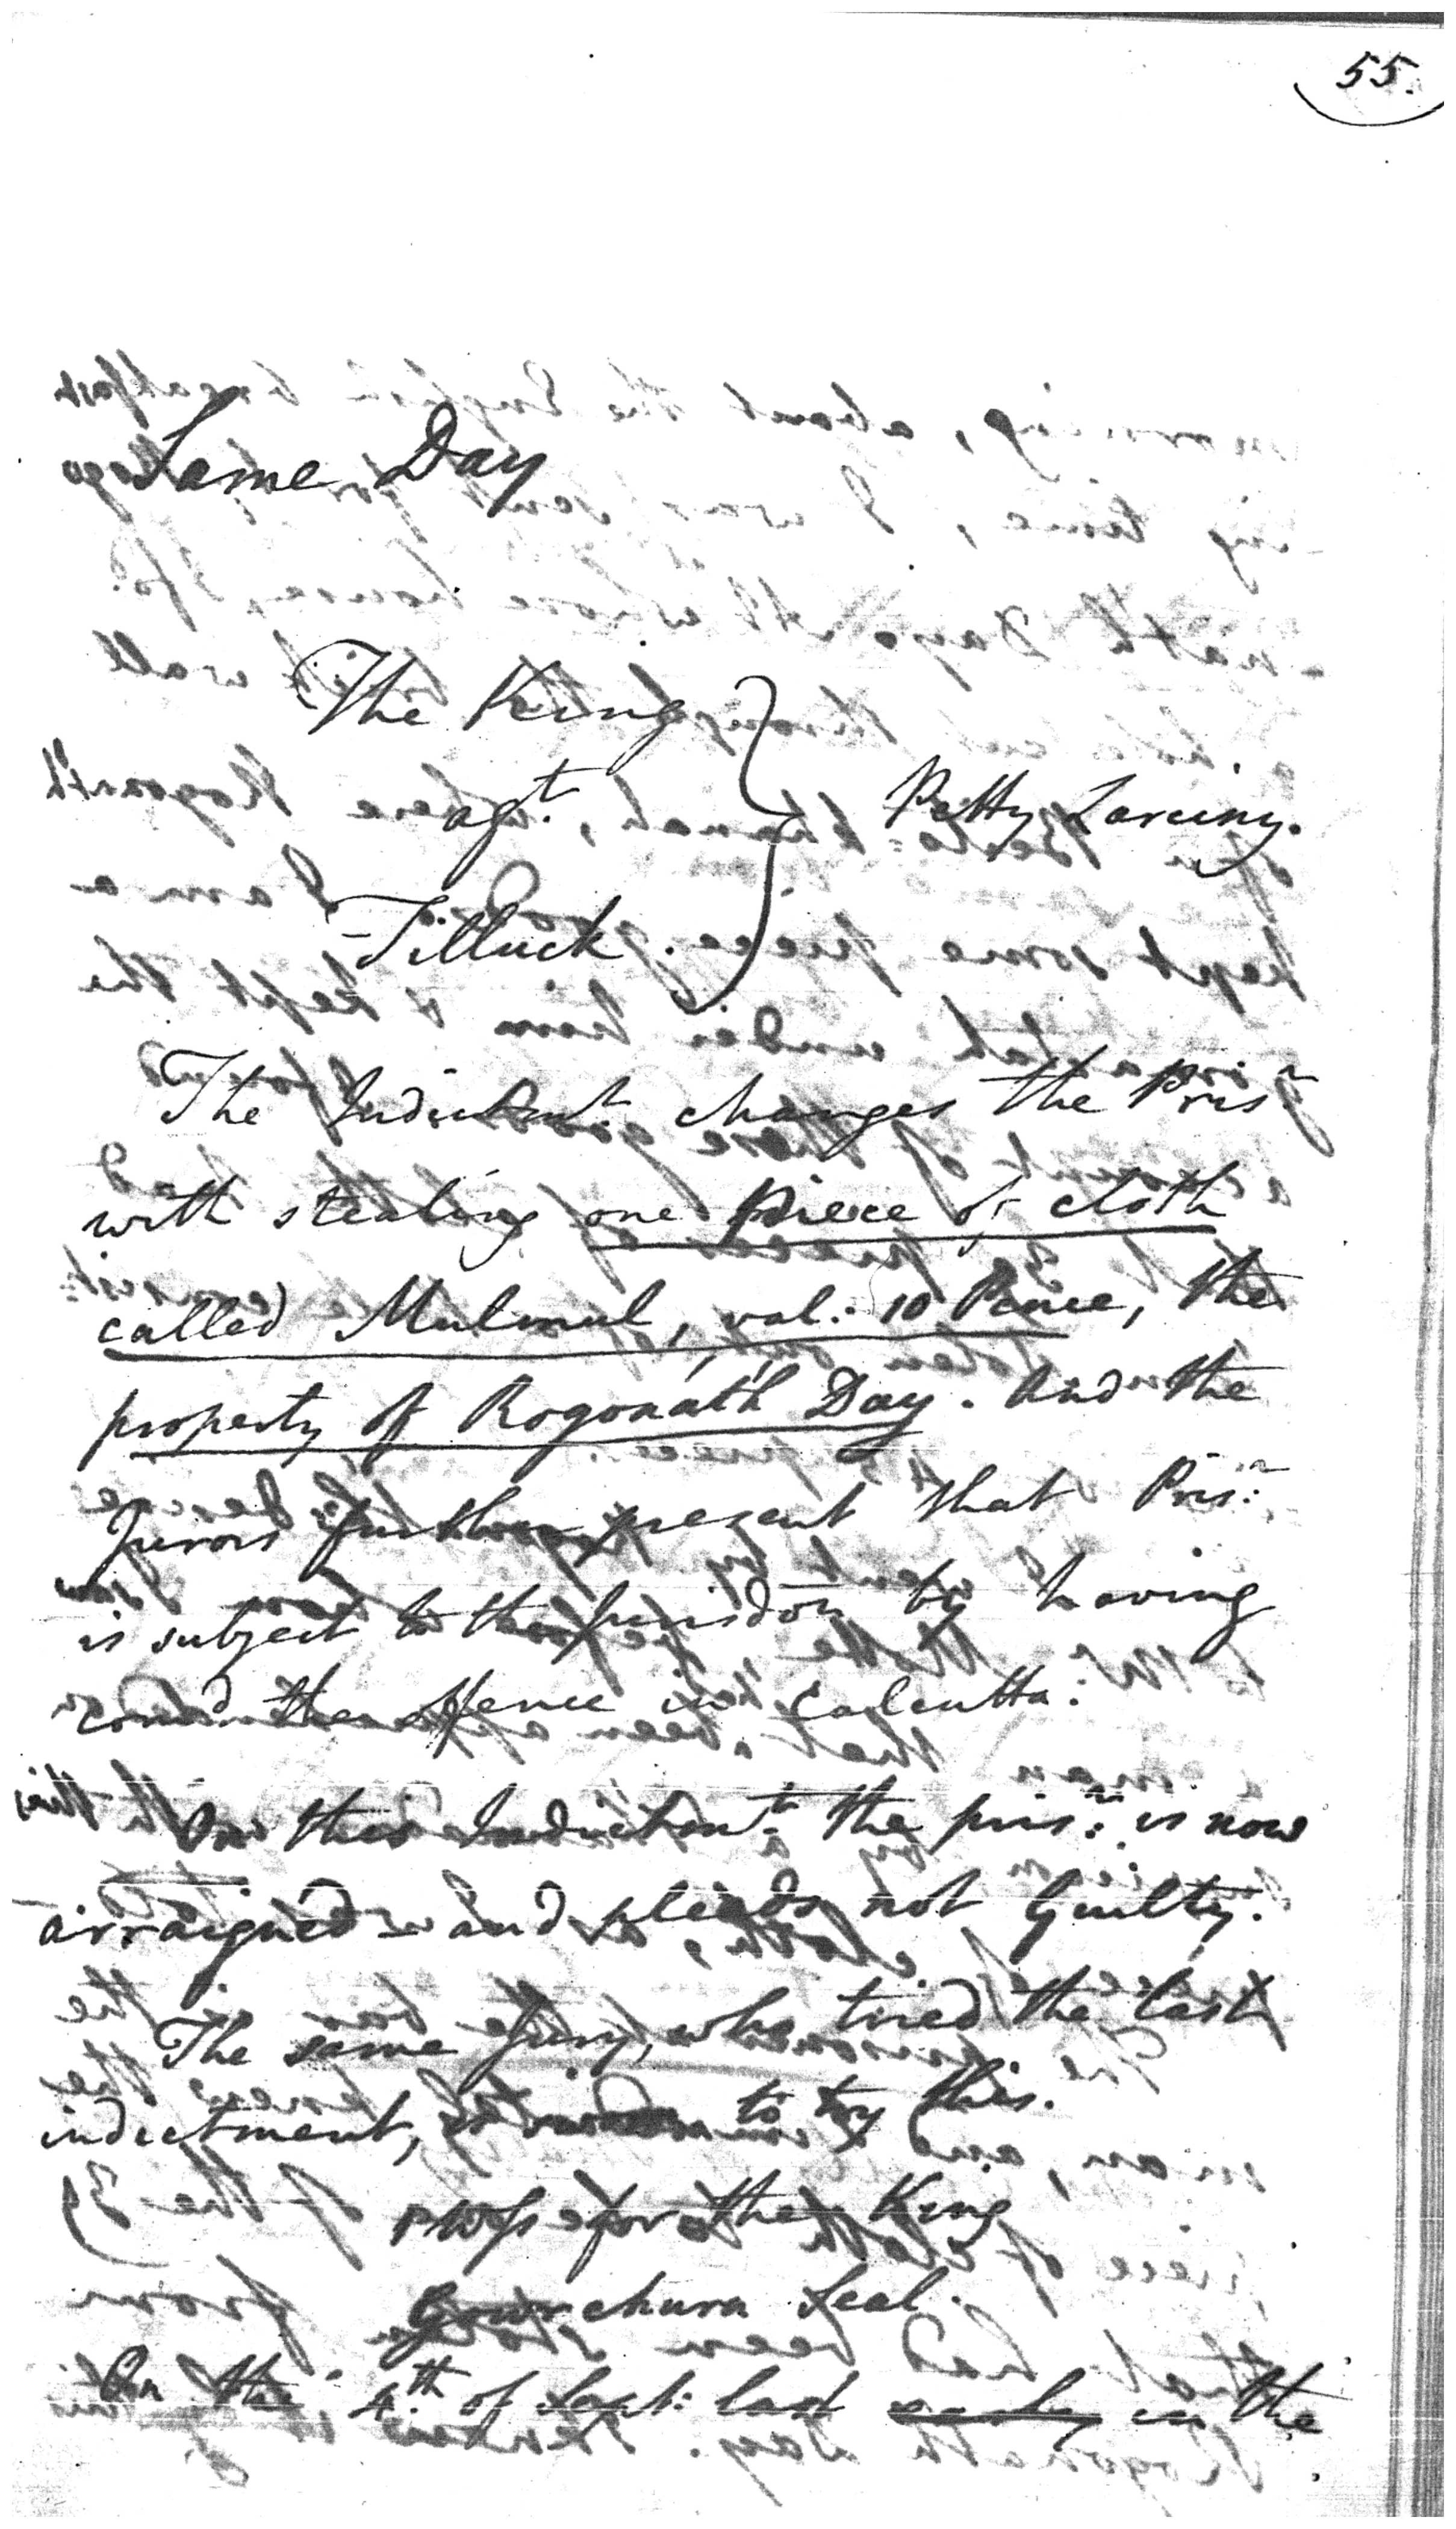 55.
Same Day
The King
agt.
Petty Larceny.
Tilluck.
The Indictmt. charges the Prisr.
with stealing one piece of cloth
called Mulmul, val: 10 Pence, the
property of Rogonath Day. And the
Jurors further present that Prisr.
is subject to the Jurisdon by having
comd the offence in Calcutta.
On this Indictmt. the prisr. is now
arraigned - and pleads not Guilty.
The same Jury, who tried the last
indictment, to try this.
for the King
Gourchurn Seal.
On the 4th. of Sept: last early in the